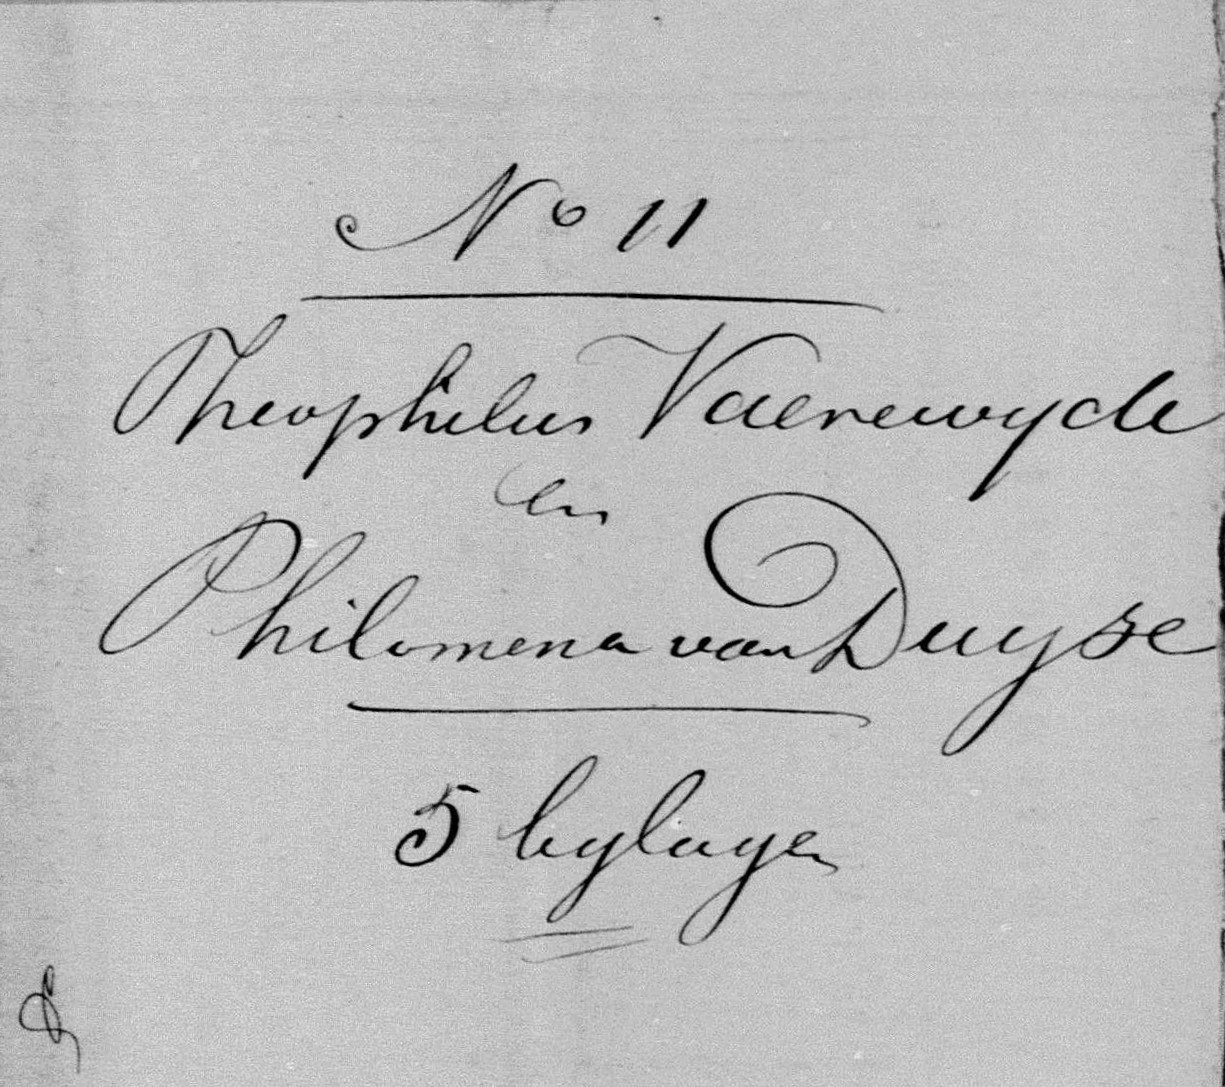 No 11
Theophilus Vaerewyck
en
Philomena van Duyse
5 bylagen